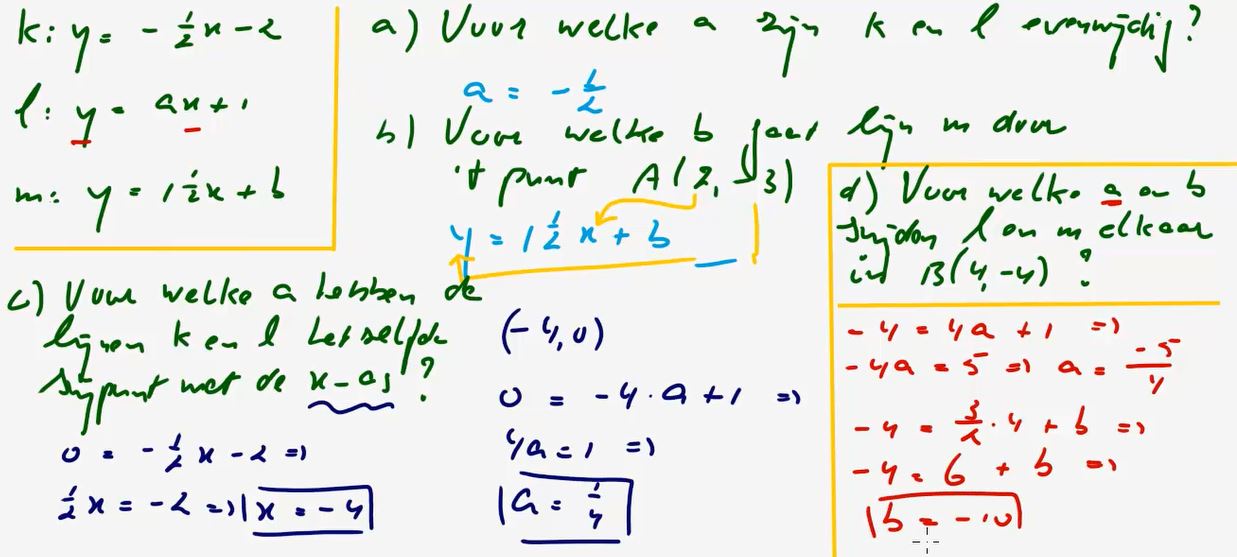 k: y = -½x - 2
l: y = ax + 1
m: y = 1½x + b
a) Voor welke a zijn k en l evenwijdig?
a = -½
b) Voor welke b gaat lijn m door
't punt A(2, 3)
y = 1½x + b
c) Voor welke a hebben de
lijnen k en l hetzelfde
snijpunt met de x-as?
0 = -½x - 2 =>
½x = -2 => x = -4
(-4,0)
0 = -4·a + 1 =>
4a = 1 =>
a = ¼
d) Voor welke a en b
snijden l en m elkaar
in B(4,-4)?
-4 = 4a + 1 =>
-4a = 5 => a = -5/4
-4 = 3/2·4 + b =>
-4 = 6 + b =>
b = -10